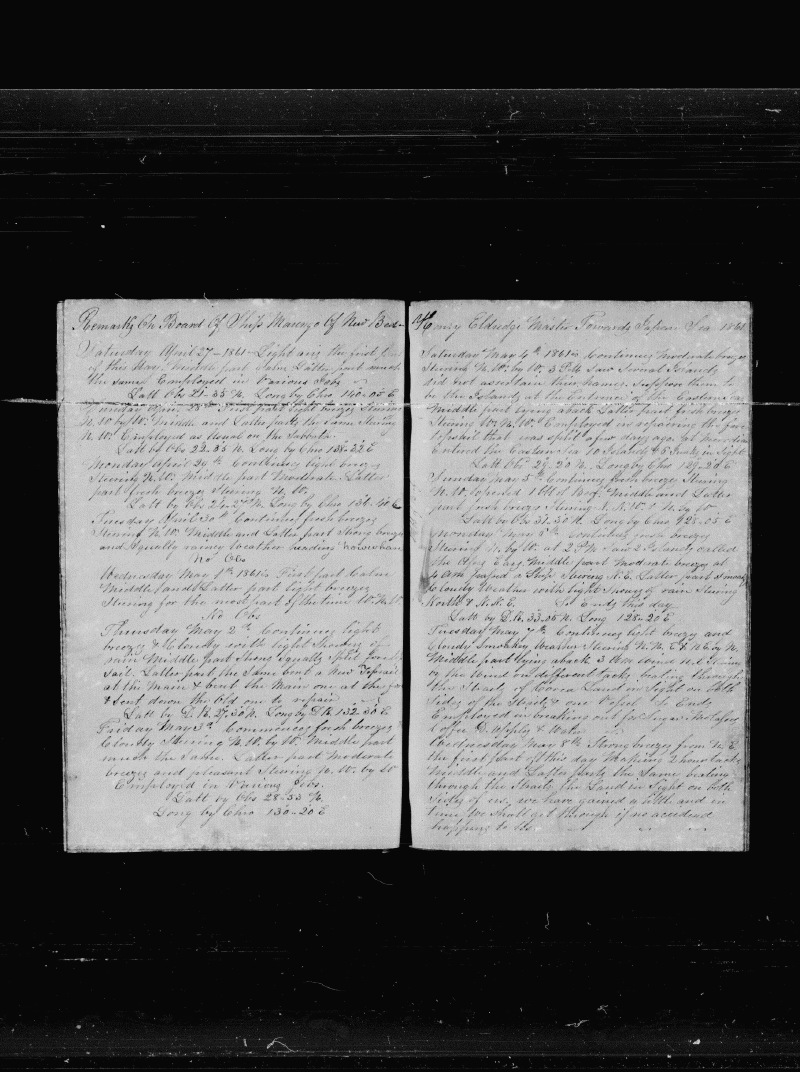 Remarks On Board Of Ship Marengo Of New Bed-
Saturday April 27 - 1861 - Light airs the first Part
of this day. Middle part Calm Latter part much
the same Employed in Various Jobs
Latt Obs 21-35 N. Long by Chro 140-05 E
Sunday first part light breezes Steering
N.W by W. Middle and Latter parts the same Steering
N.W. Employed as Usual on the Sabbath.
Latt by Obs 22-35 N Long by Chro 138-32 E
Monday April 29th Continues light breezes
Steering N.W. Middle part Moderate. Latter
part fresh breeze Steering N.W.
Latt by Obs N. Long by Chro E
Tuesday April 30th Continues fresh breezes
Steering N.W. Middle and Latter part Strong breezes
and Squally rainy weather heading
No Obs
Wednesday May 1st 1861 First part Calm
Middle and Latter part light breezes
Steering for the most part of the time W.N.W.
No Obs
Thursday May 2nd Continues light
breezes & Cloudy with light Showers of
rain Middle part Strong Squalls Split
Sail. Latter part the Same bent a New Topsail
at the Main & bent the Main one at the fore
& Sent down the Old one to repair
Latt by D.R. 27-30 N. Long by D.R. 132-30 E
Friday May 3rd Commences fresh breezes
Cloudy Steering N.W. by W. Middle part
much the Same. Latter part Moderate
breezes and pleasant Steering N.W. by W
Employed in Various Jobs.
Latt by Obs 28-33 N.
Long by Chro 130-20 E
Henry Eldredge Master Towards Japan Sea 1861
Saturday May 4th 1861 Continues Moderate breezes
Steering N.W. by W. 3 P.M. Saw Several Islands
did not assertain thair names. Suppose them to
be the Islands at the Entrance of the Eastern Sea
Middle part lying aback Latter part fresh breezes
Steering W.N.W. Employed in repairing the fore
topsail that was split a few days ago. at Meridian
Entered the Eastern Sea 10 Islands & 5 in Sight
Latt Obs 29-20 N. Long by Chro 129-20 E
Sunday May 5th Continues fresh breezes Steering
N.W. Opened 1 Bbl of Beef. Middle and Latter
part fresh breezes Steering N.N.W. & N. by W.
Latt by Obs 31-30 N. Long by Chro 128-05 E
Monday May 6th Continues fresh breezes
Steering N. by W. at 2 P.M. Saw 2 Islands called
the Ears Middle part Moderate breezes at
4 AM passed a Ship Steering N.E. Latter part Smoky
Cloudy Weather with light Showers of rain Steering
North & N.N.E. So Ends this day
Latt by D.R. 33-05 N Long 128-20 E
Tuesday May 7th Continues light breezes and
Cloudy Smokey Weather Steering N.N.E. & N.E. by N.
Middle part lying aback 3 AM
by the wind on different tacks beating through
the Straits of Corea Land in Sight on both
Sides of the Straits & one Vessel So Ends
Employed in breaking out for Sugar Molasses
Coffee D. Apples & Water
Wednesday May 8th Strong breezes from N.E.
the first part of this day tacking 2 hour tacks
Middle and Latter parts the Same beating
through the Straits, the Land in Sight on both
Sides of us, we have gained a little and in
time we Shall get through if no accident
happens to Us